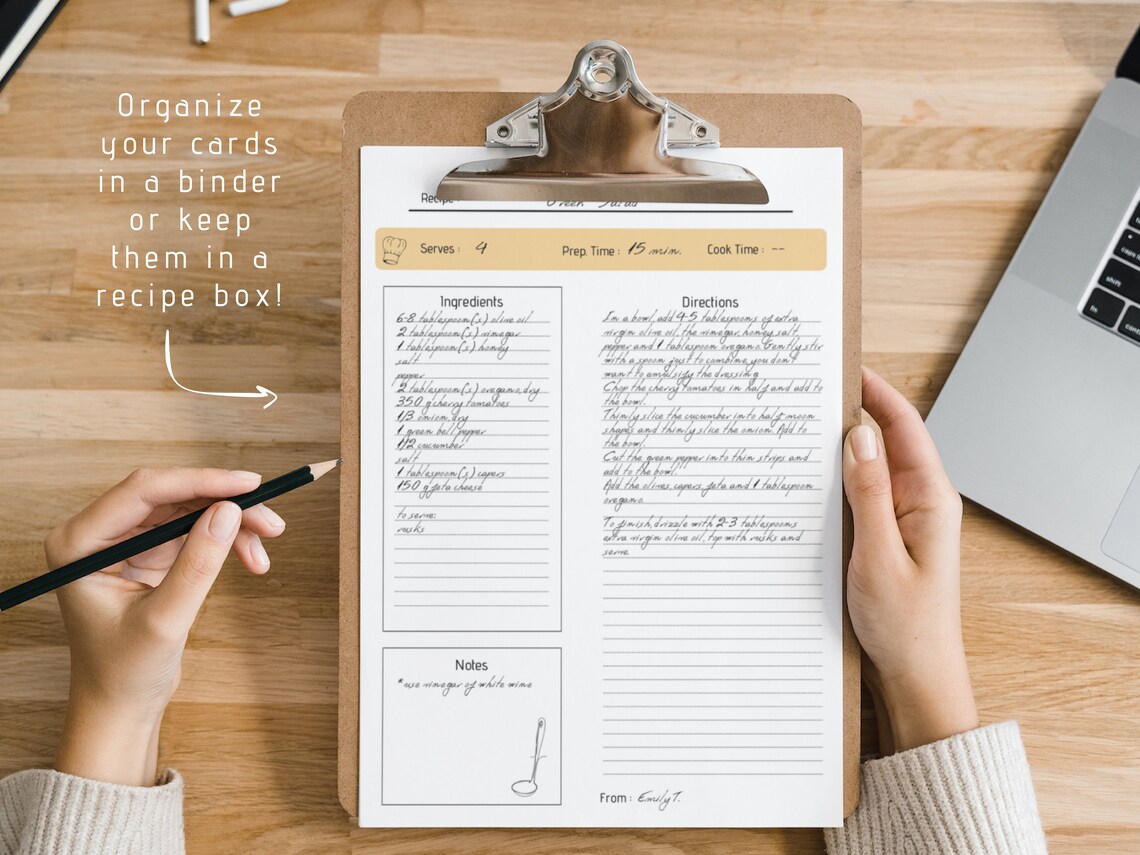 Organize
your cards
in a binder
or keep
them in a
recipe box!
Recipe: Greek Salad
Serves : 4 Prep. Time : 15 min. Cook Time : --
Ingredients
6-8 tablespoon(s) olive oil
2 tablespoon(s) vinegar
1 tablespoon(s) honey
salt
pepper
2 tablespoon(s) oregano, dry
350 g cherry tomatoes
1/3 onion, dry
1 green bell pepper
1/2 cucumber
salt
1 tablespoon(s) capers
150 g feta cheese
to serve:
rusks
Notes
*use vinegar of white wine
Directions
In a bowl, add 4-5 tablespoons of extra
virgin olive oil, the vinegar, honey, salt,
pepper and 1 tablespoon oregano. Gently stir
with a spoon just to combine, you don't
want to emulsify the dressing.
Chop the cherry tomatoes in half and add to
the bowl.
Thinly slice the cucumber into half moon
shapes and thinly slice the onion. Add to
the bowl.
Cut the green pepper into thin strips and
add to the bowl.
Add the olives, capers, feta and 1 tablespoon
oregano.
To finish, drizzle with 2-3 tablespoons
extra virgin olive oil, top with rusks and
serve.
From : Emily T.
fn